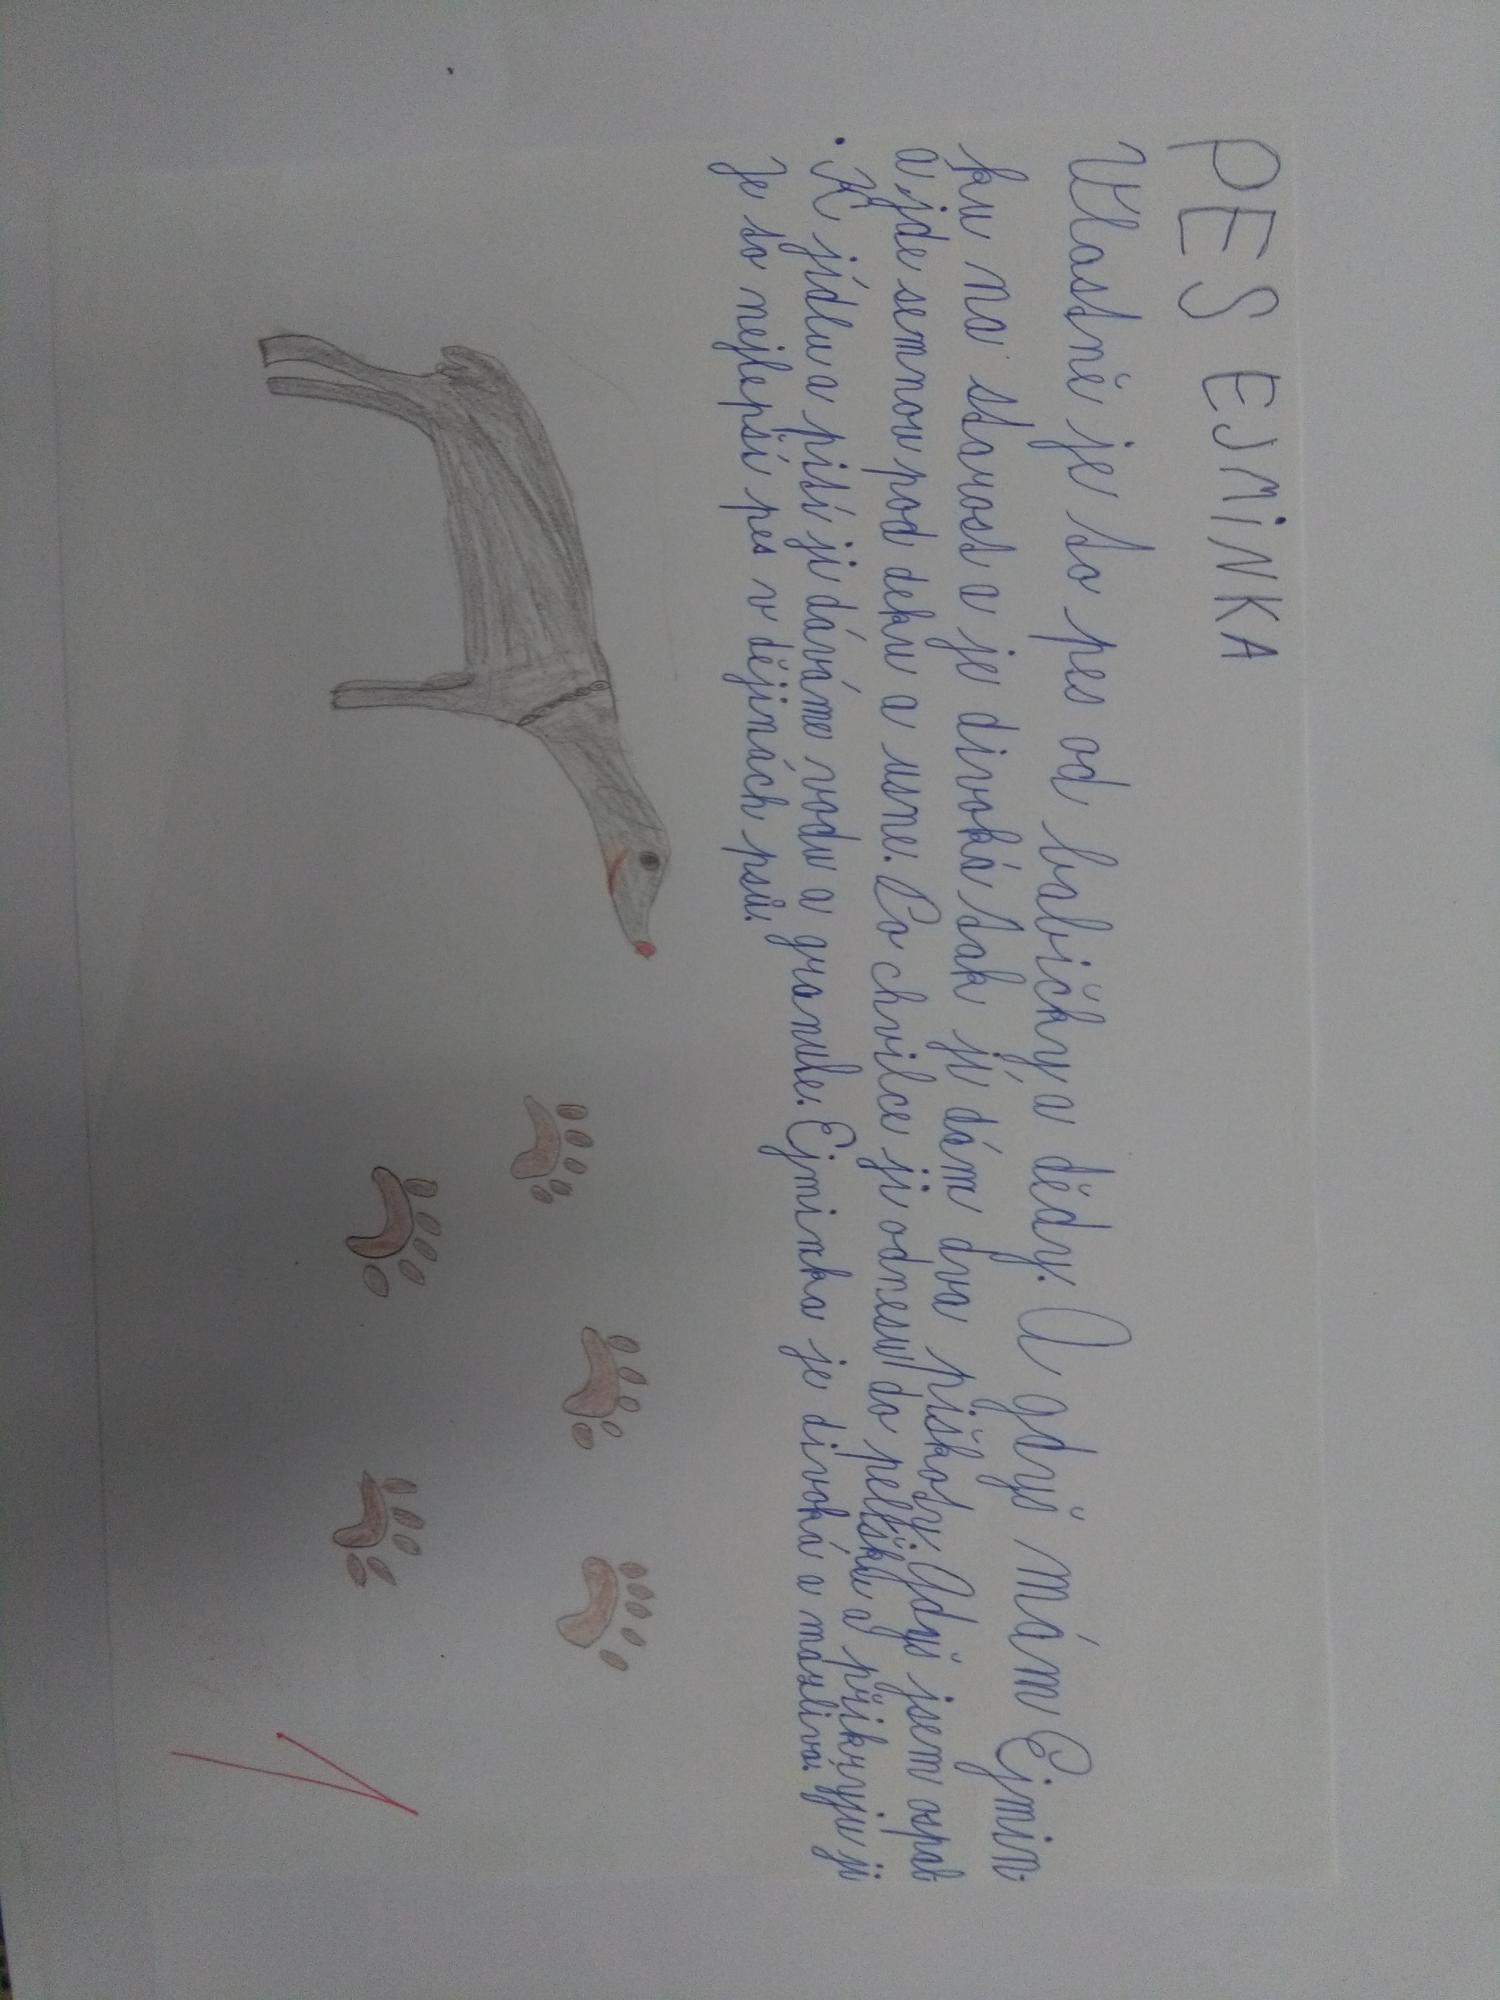 PES EJMINKA
Vlastně je to pes od babičky a dědy. A gdyš mám Ejmin-
ku na starost a je divoká tak jí dám dva piškoty. Gdyš jsem ospal
a jde semnou pod deku a usne. Po chvilce ji odnesu do pelíšku a přikryju ji
. K jídlu a pití ji dáváme vodu a granule. Ejminka je divoká a mazlivá.
Je to nejlepší pes v dějinách psů.
1